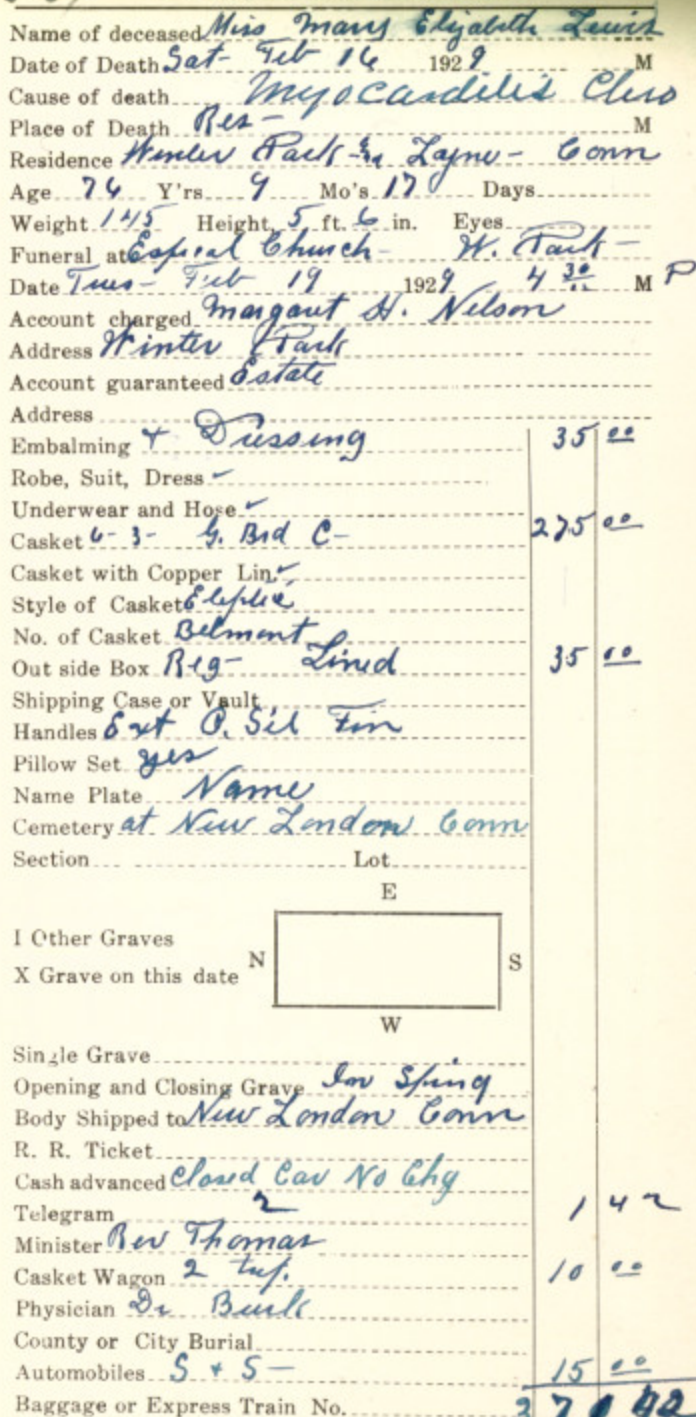 Name of deceased Miss Mary Elizabeth Lewis
Date of Death Sat- Feb 16 1929 M
Cause of death Myocarditis Chro
Place of Death Res- M
Residence Winter Park Conn
Age 76 Y'rs 9 Mo's 17 Days
Weight 145 Height 5 ft. 6 in. Eyes
Funeral at Espical Church- W. Park-
Date Tues- Feb 19 1929 4 30 M P
Account charged Margaret H. Nelson
Address Winter Park
Account guaranteed Estate
Address
Embalming + Dressing 35 00
Robe, Suit, Dress
Underwear and Hose
Casket 6-3- G. Brd C- 275 00
Casket with Copper Lin.
Style of Casket
No. of Casket Belmont
Out side Box Reg- Lined 35 00
Shipping Case or Vault
Handles Ext Sil Fin
Pillow Set yes
Name Plate Name
Cemetery at New London Conn
Section Lot
E
I Other Graves
N S
X Grave on this date
W
Single Grave
Opening and Closing Grave Spring
Body Shipped to New London Conn
R. R. Ticket
Cash advanced Closed Car No Chg
Telegram 2 1 42
Minister Rev Thomas
Casket Wagon 2 10 00
Physician Dr
County or City Burial
Automobiles S + S- 15 00
Baggage or Express Train No.